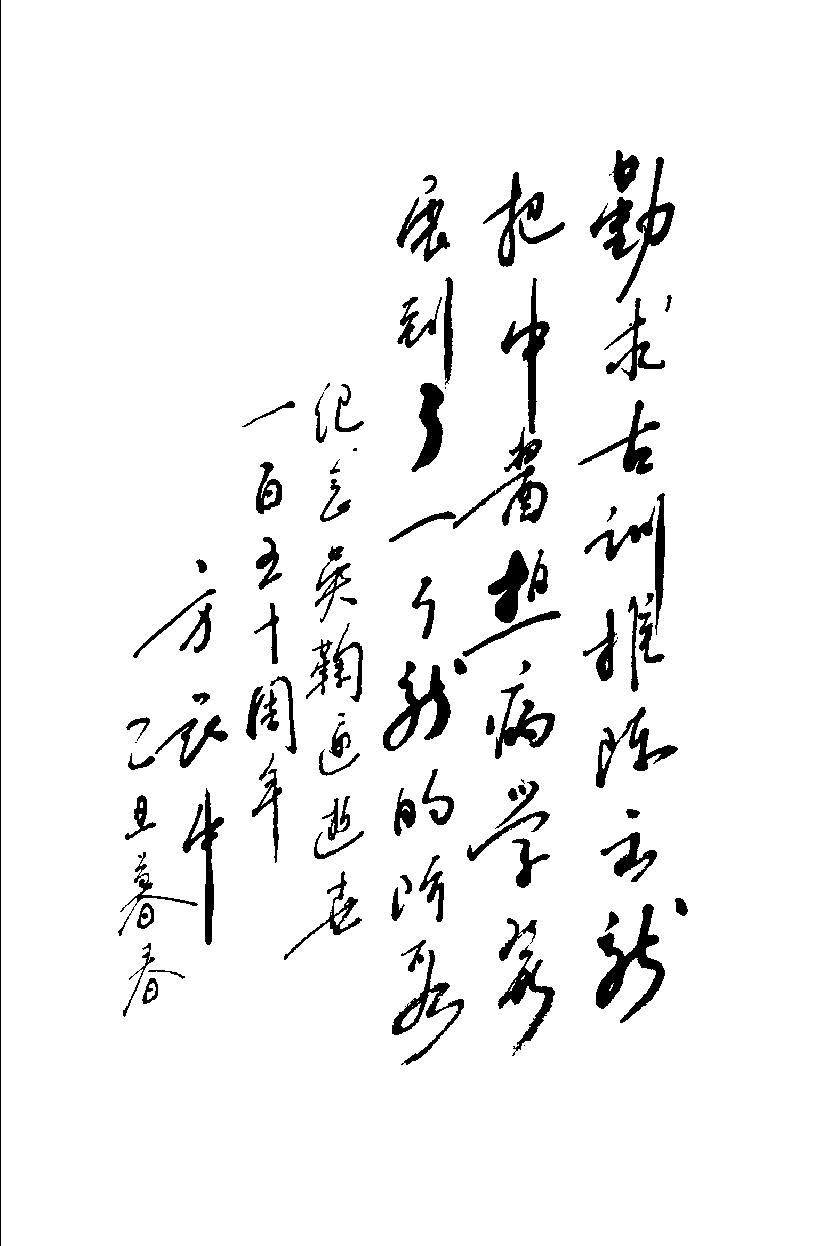 勤求古训推陈出新
把中醫温病学发
展到了一个新的阶段
纪念吴鞠通逝世
一百五十周年
方药中
乙丑暮春